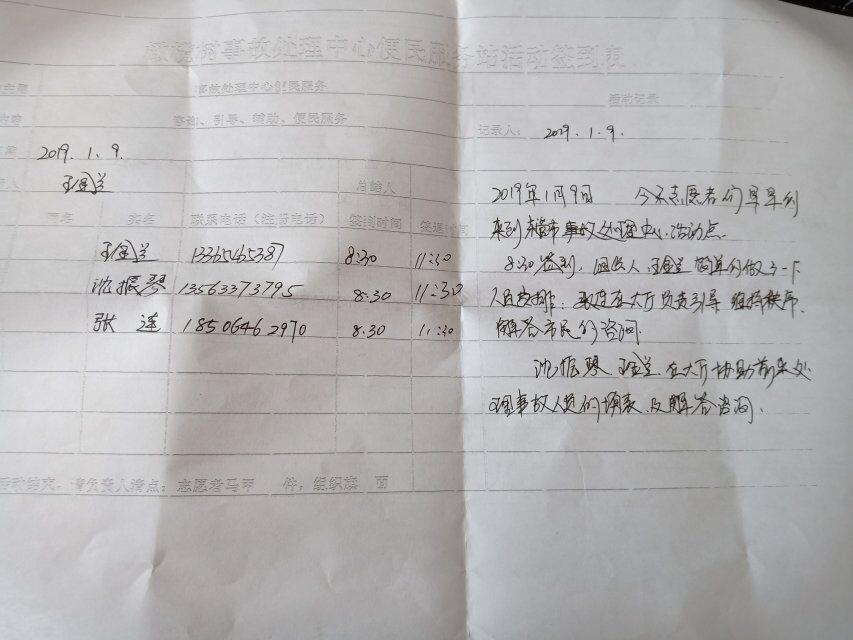 事故处理中心便民服务站活动签到表
事故处理中心便民服务
咨询、引导、辅助、便民服务
2019.1.9.
总结人
实名 联系电话（注册电话） 签到时间 签退时间
王金兰 13365465387 8:30 11:30
沈振琴 13563373795 8:30 11:30
张莲 18506462970 8:30 11:30
活动结束，请负责人清点：志愿者马甲 件，组织旗 面
活动记录
记录人： 2019.1.9.
2019年1月9日 今天志愿者们早早的
来到 事故处理中心活动点.
8:30签到， 王金兰简单的做了一下
人员安排： 在大厅负责引导 维持秩序.
解答市民的咨询.
沈振琴 王金兰在大厅协助前来处
理事故人员的填表.及解答咨询.